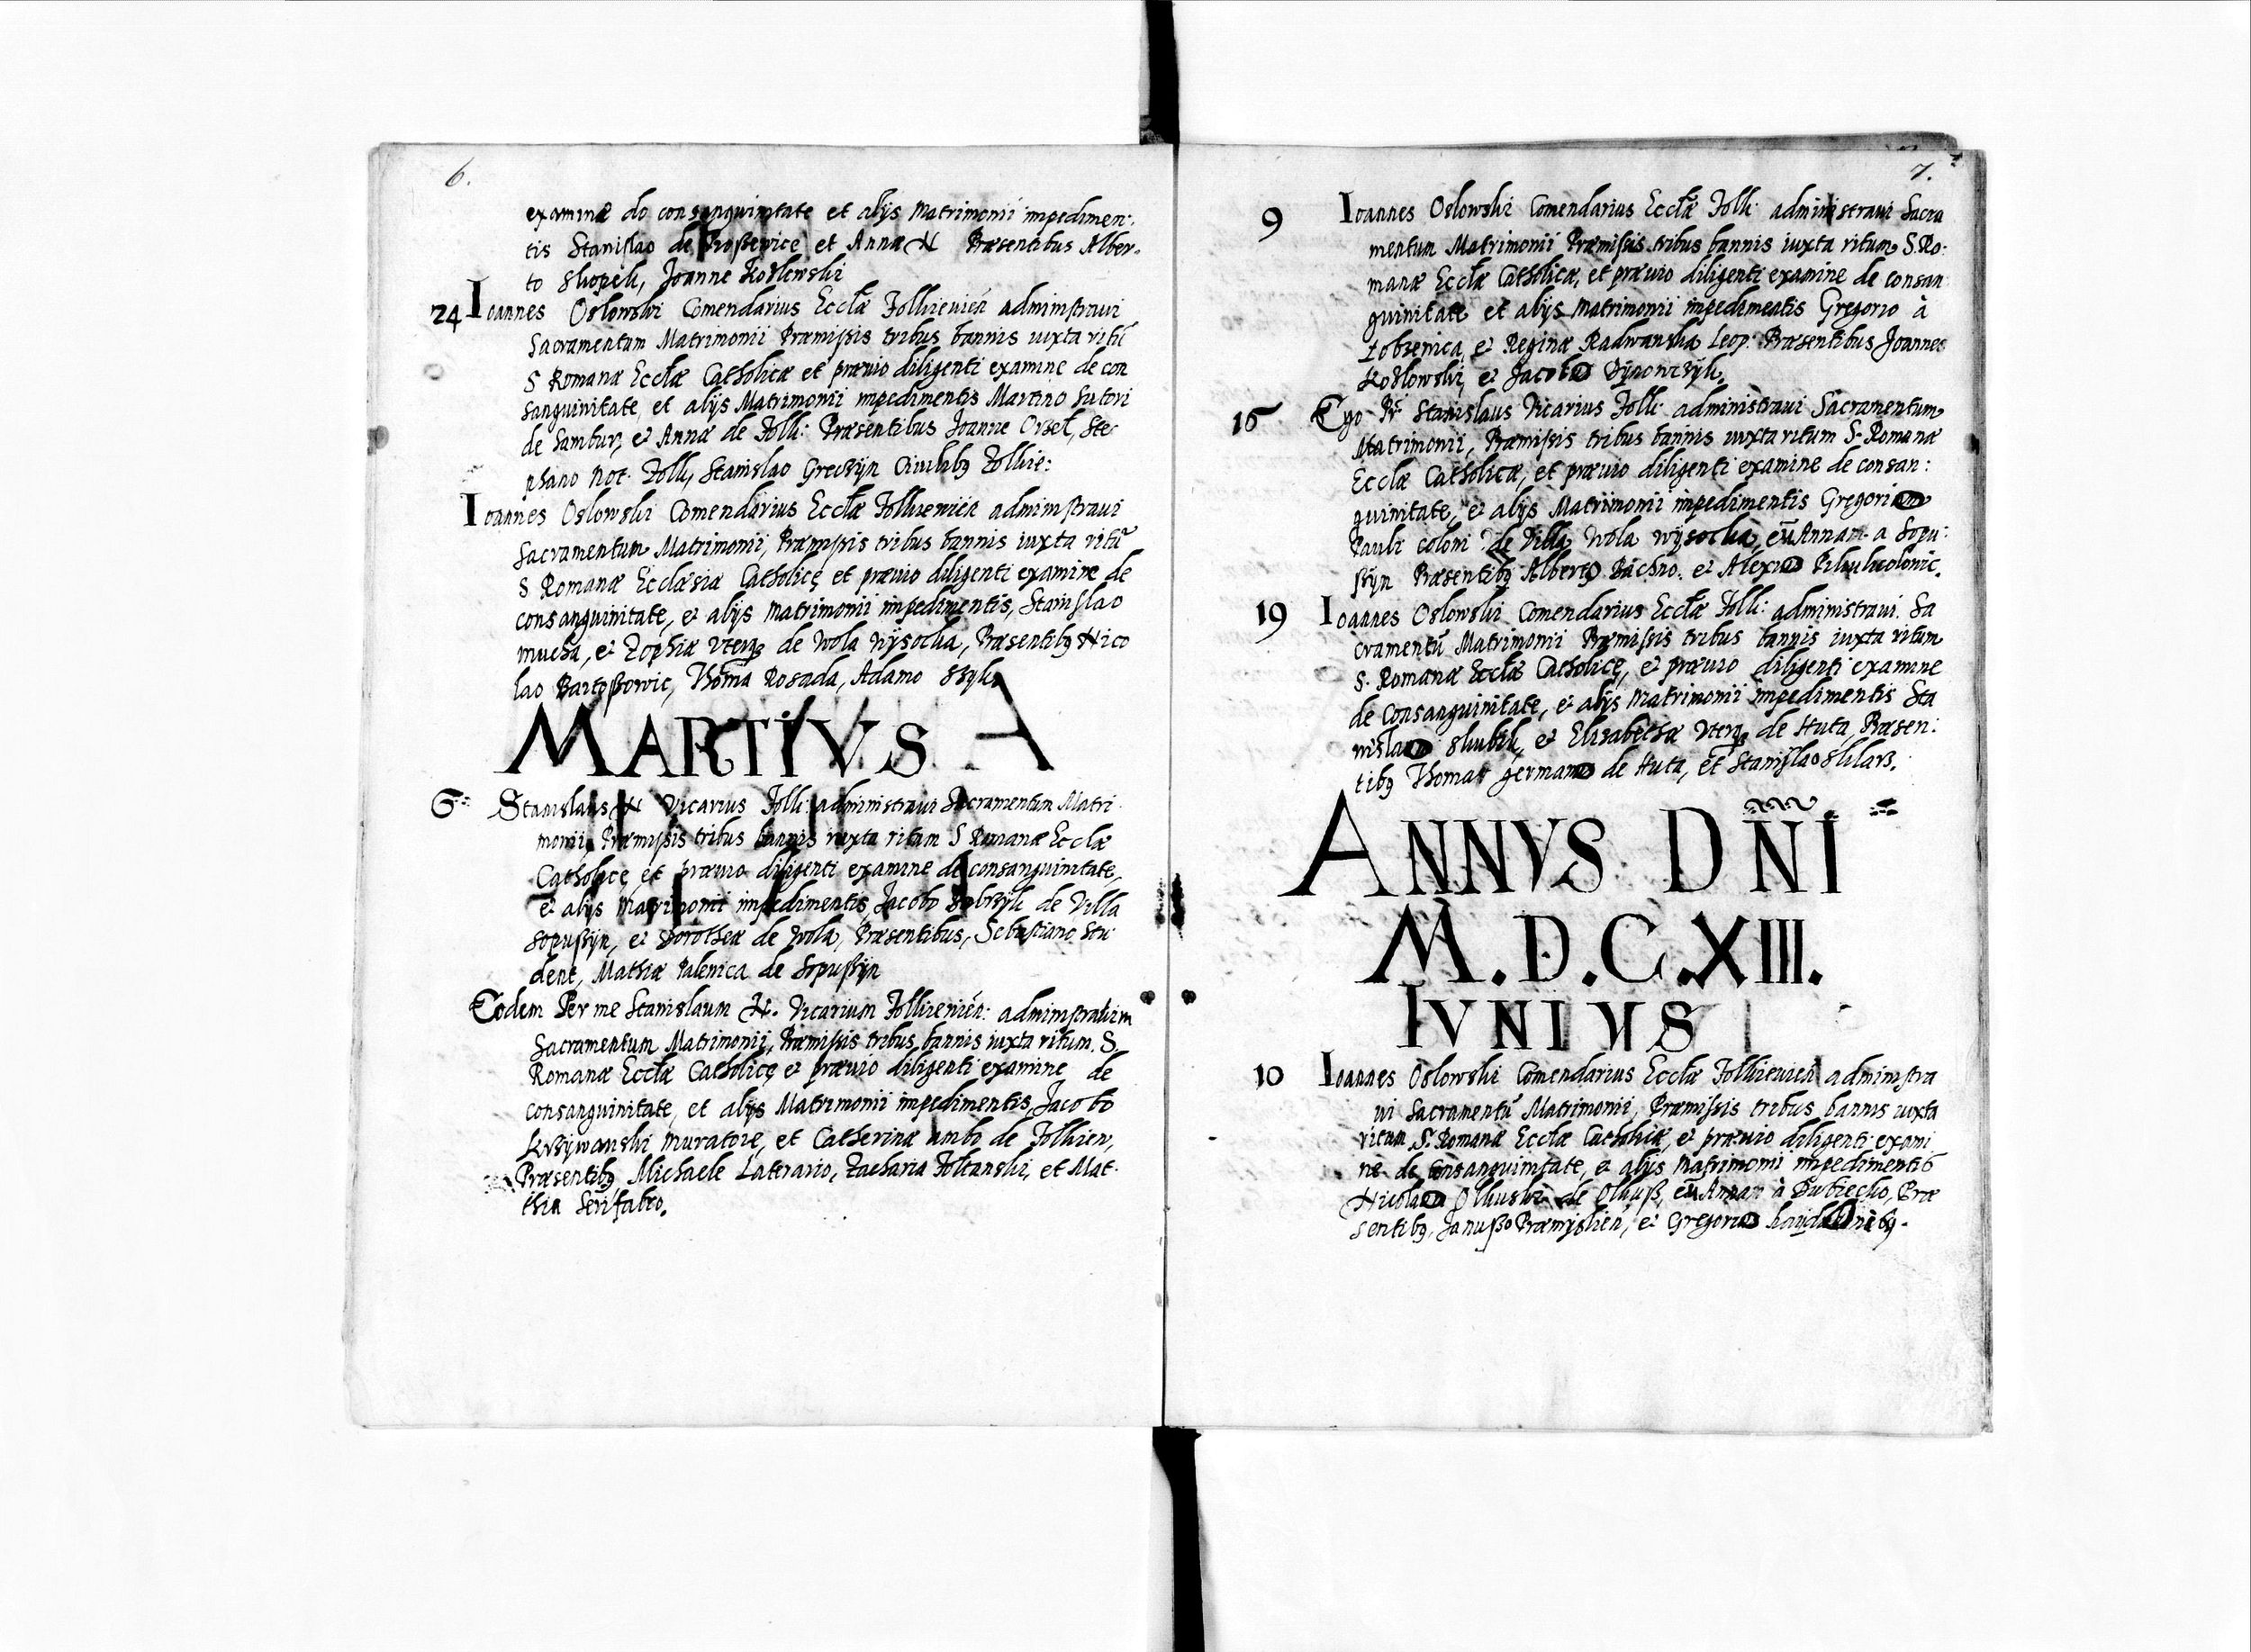 6.
examinæ do consanguinitate et alijs Matrimonii impedimen:
tis Stanislao de et Annæ N Præsentibus Alber-
to Skopek, Joanne Kozlowski
24 Ioannes Oslowski Comendarius Ecclæ Zolkievien administravi
Sacramentum Matrimonii Præmissis tribus bannis iuxta ritū
S Romanæ Ecclæ Catholicæ et prævio diligenti examine de con
sanguinitate, et alijs Matrimonii impedimentis Martino Sutori
de Sambur, et Annæ de Zolk: Præsentibus Joanne Orzel, Ste
phano Not. Zolk, Stanislao Greczyn Civibq Zolkie:
Ioannes Oslowski Comendarius Ecclæ Zolkievien administravi
Sacramentum Matrimonii, Præmissis tribus bannis iuxta ritū
S Romanæ Ecclæsiæ Catholicę et prævio diligenti examine de
consanguinitate, et alijs Matrimonii impedimentis, Stanislao
mucha, et Zophiæ uterq de Wola Wysocka, Præsentibq Nico
lao Bartoszowic, Thoma Rosada, Adamo
MARTIVS A
6 Stanislaus N Vicarius Zolk: administravi Sacramentum Matri
monii, Præmissis tribus bannis iuxta ritum S Romanæ Ecclæ
Catholicę et prævio diligenti examine de consanguinitate,
et alijs Matrimonii impedimentis Jacobo de Villa
Sopuszyn, et Dorotheæ de Wola, Præsentibus, Sebastiano Stu
dent, Mathiæ Palenica de Sopuszyn
Eodem Per me Stanislaum N. Vicarium Zolkievien: administratum
Sacramentum Matrimonii, Præmissis tribus bannis iuxta ritum. S.
Romanæ Ecclæ Catholicę et prævio diligenti examine de
consanguinitate, et alijs Matrimonii impedimentis, Jacobo
Krzywanski muratore, et Catherinæ ambo de Zolkien,
Præsentibq Michaele Laterario, Zacharia Zoltanski, et Mat-
thia Serifabro.
7.
9 Ioannes Oslowski Comendarius Ecclæ Zolk: administravi Sacra
mentum Matrimonii Præmissis tribus bannis iuxta ritum S. Ro-
manæ Ecclæ Catholicæ, et prævio diligenti examine de consan
guinitate et alijs Matrimonii impedimentis Gregorio à
Lobzenica, et Reginæ Radwanska Leop: Præsentibus Joanne
Kozlowski, et Jacobo
16 Ego Pr Stanislaus Vicarius Zolk: administravi Sacramentum
Matrimonii, Præmissis tribus bannis iuxta ritum S. Romanæ
Ecclæ Catholicæ, et prævio diligenti examine de consan:
guinitate, et alijs Matrimonii impedimentis Gregori
Pauli coloni de Villa Wola Wysocka, cū Annam a Sopu:
szyn Præsentibq Alberto Bachno. et Alexio
19 Ioannes Oslowski Comendarius Ecclæ Zolk: administravi. Sa
cramentū Matrimonii Præmissis tribus bannis iuxta ritum
S. Romanæ Ecclæ Catholicę, et prævio diligenti examine
de Consanguinitate, et alijs Matrimonii impedimentis Sta
nislao Skubik, et Elisabethæ uterq de Huta, Præsen:
tibq Thoma germano de Huta, et Stanislao Sklars.
ANNVS DNI
M.D.C.XIII.
IVNIVS
10 Ioannes Oslowski Comendarius Ecclæ Zolkievien administra
vi Sacramentū Matrimonii, Præmissis tribus bannis iuxta
ritum S. Romanæ Ecclæ Catholicæ, et prævio diligenti exami
ne de Consanguinitate, et alijs Matrimonii impedimentis
Nicolao Olkuski de Olkusz, cū Annam à Dubiecko, Præ
sentibq, Januszo Præmislien, et Gregorio